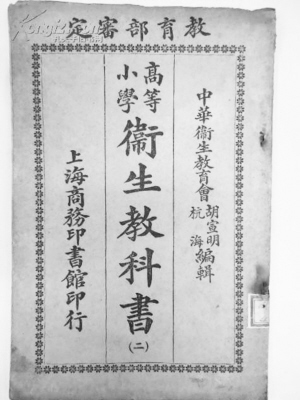 教育部審定
中華衞生教育會 胡宣明 杭海 編輯
高等小學 衞生教科書 (二)
上海商務印書館印行